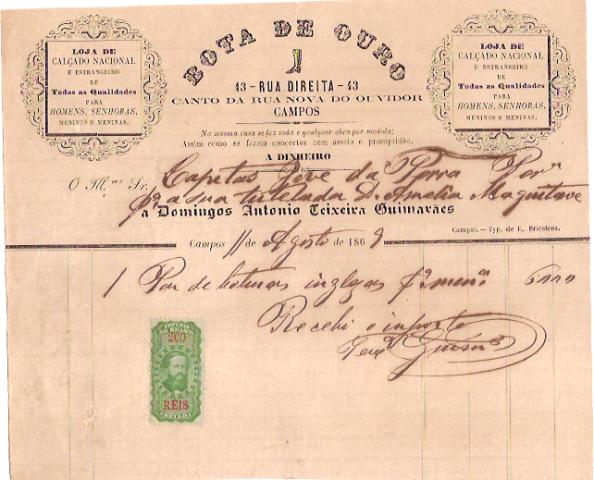 LOJA DE
CALÇADO NACIONAL
E ESTRANGEIRO
DE
Todas as Qualidades
PARA
HOMENS, SENHORAS,
MENINOS E MENINAS.
BOTA DE OURO
43 - RUA DIREITA - 43
CANTO DA RUA NOVA DO OUVIDOR
CAMPOS
Na mesma casa se faz toda e qualquer obra por medida;
Assim como se fazem concertos com asseio e promptidão.
A DINHEIRO
LOJA DE
CALÇADO NACIONAL
E ESTRANGEIRO
DE
Todas as Qualidades
PARA
HOMENS, SENHORAS,
MENINOS E MENINAS.
O Ill.mo Sr. Capitão José da
pa a sua tutelada D. Amelia
a Domingos Antonio Teixeira Guimarães
Campos.—Typ. de E. Bricolens.
Campos 11 de Agosto de 1869
1 Par de boturas inglezas pa
Recebi o importe
200
REIS